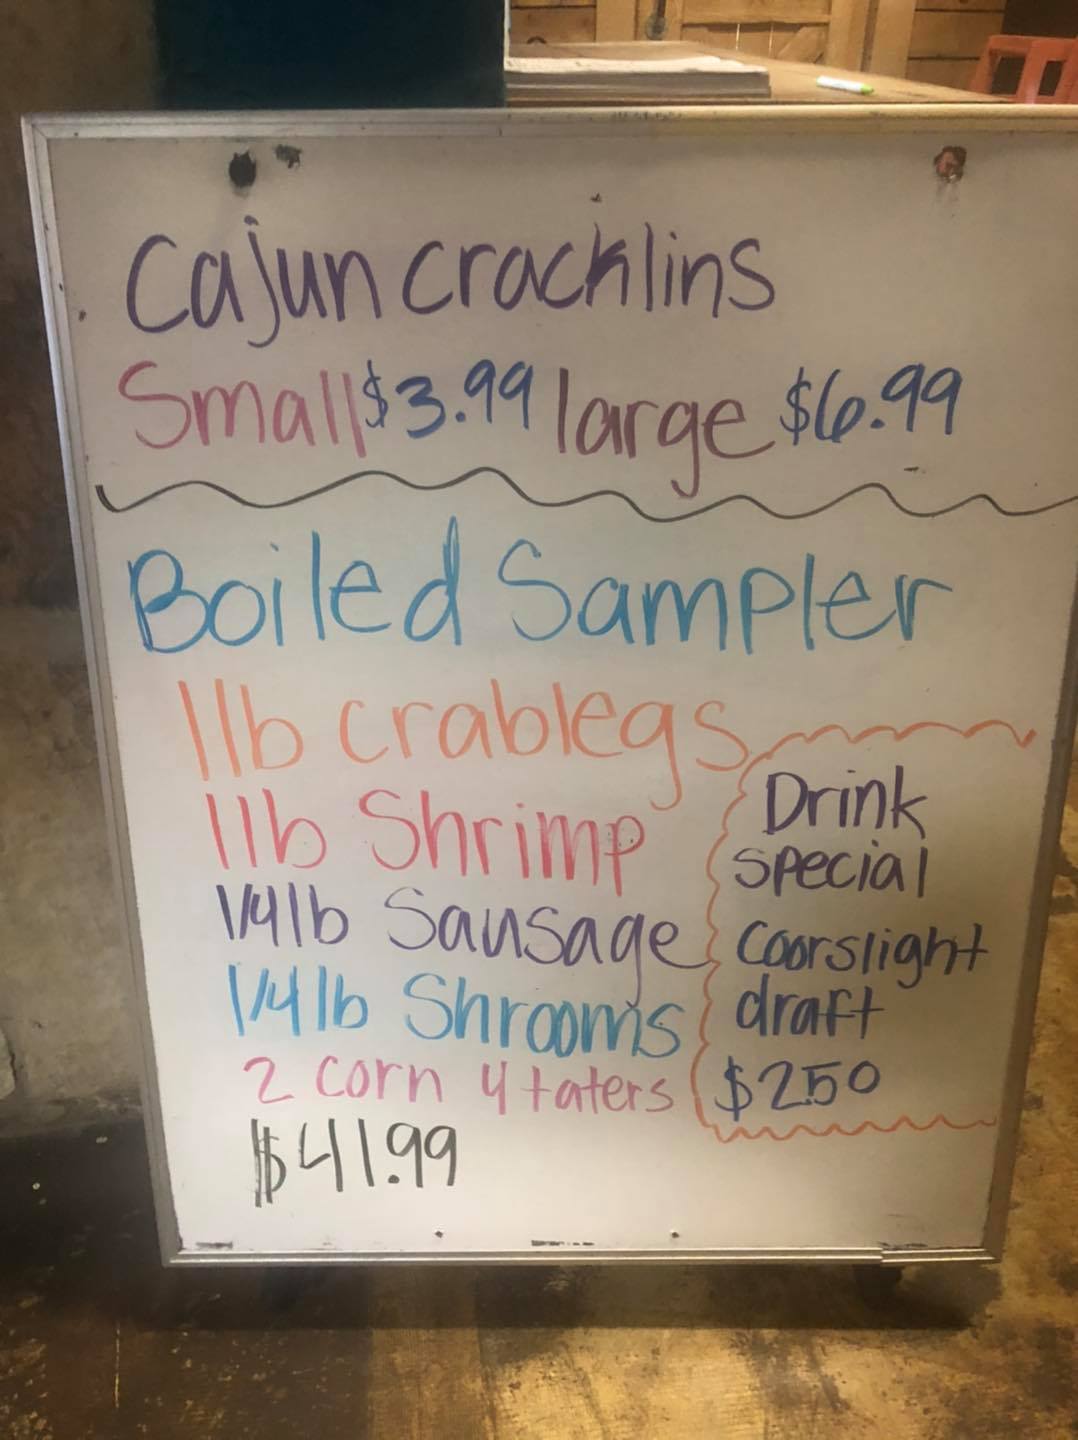 Cajun cracklins
Small $3.99 large $6.99
Boiled Sampler
1lb crablegs
1lb Shrimp
1/4lb Sausage
1/4lb Shrooms
2 corn 4 taters
$41.99
Drink
special
Coorslight
draft
$2.50